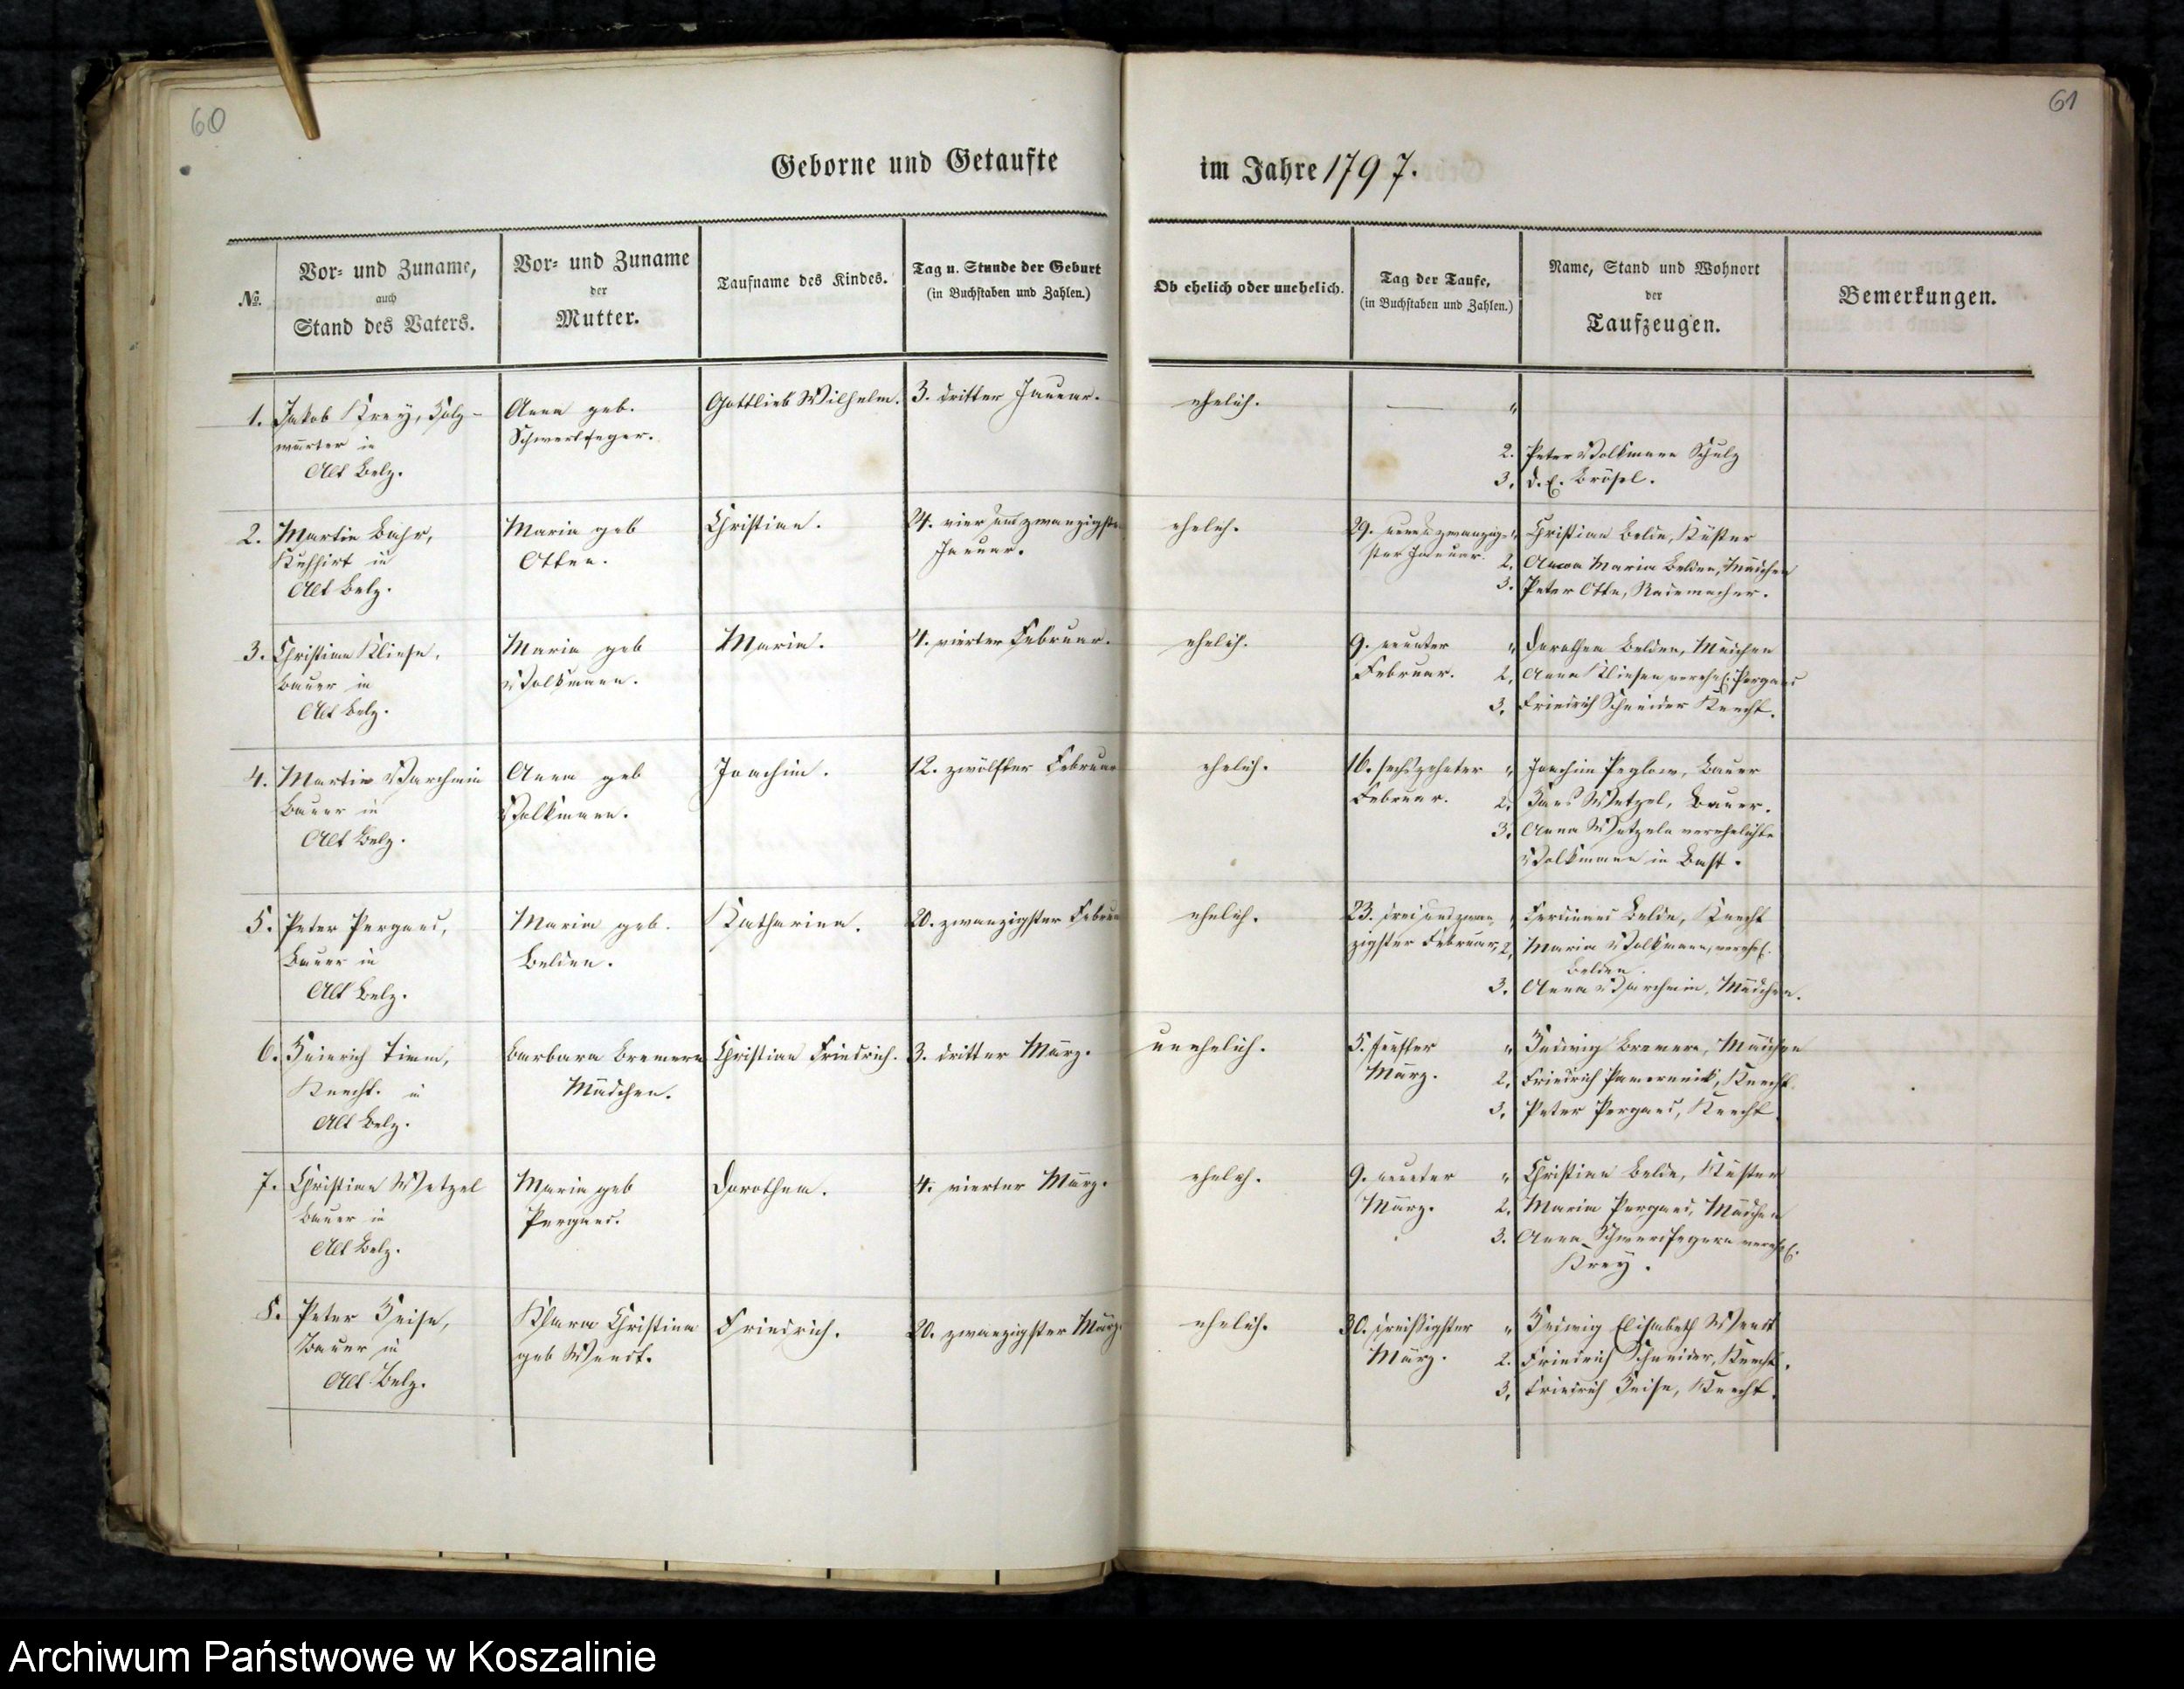 60
61
Geborne und Getaufte
im Jahre 1797.
№.
Vor- und Zuname,
auch
Stand des Vaters.
Vor- und Zuname
der
Mutter.
Taufname des Kindes.
Tag u. Stunde der Geburt
(in Buchstaben und Zahlen.)
Ob ehelich oder unehelich.
Tag der Taufe,
(in Buchstaben und Zahlen.)
Name, Stand und Wohnort
der
Taufzeugen.
Bemerkungen.
1. Jakob Krey, Holz-
wärter in
Alt Belz.
Anna geb.
Schwerdfeger.
Gottlieb Wilhelm.
3. dritter Januar.
ehelich.
— "
2. Peter Volkmann Schulz
3. D. E. Brösel.
2. Martin Bahr,
Kuhhirt in
Alt Belz.
Maria geb
Otten.
Christian.
24. vier und zwanzigster
Januar.
ehelich.
29. neunundzwanzig-
ster Januar.
" Christian Belde, Küster
2. Anna Maria Belden, Mädchen
3. Peter Otte, Rademacher.
3. Christian Kliese,
Bauer in
Alt Belz.
Maria geb
Volkmann.
Maria.
4. vierter Februar.
ehelich.
9. neunter
Februar.
" Dorothea Belden, Mädchen
2. Anna Kliesen verehel. Pergand
3. Friedrich Schneider Knecht.
4. Martin Varchmin
Bauer in
Alt Belz.
Anna geb
Volkmann.
Joachim.
12. zwölfter Februar
ehelich.
16. sechszehnter
Februar.
" Joachim Peglow, Bauer
2. Hans Wetzel, Bauer.
3. Anna Wetzeln verehelichte
Volkmann in Bast.
5. Peter Pergand,
Bauer in
Alt Belz.
Maria geb.
Belden.
Katharina.
20. zwanzigster Februar
ehelich.
23. drei und zwan
zigster Februar,
" Ferdinand Belde, Knecht
2. Maria Volkmann, verehel.
Belden.
3. Anna Varchmin, Mädchen.
6. Heinrich Timm,
Knecht. in
Alt Belz.
Barbara Bremern
Mädchen.
Christian Friedrich.
3. dritter März.
unehelich.
5. fünfter
März.
" Hedwig Bremern, Mädchen
2. Friedrich Pamerenick, Knecht.
3. Peter Pergand, Knecht.
7. Christian Wetzel
Bauer in
Alt Belz.
Maria geb
Pergand.
Dorothea.
4. vierter März.
ehelich.
9. neunter
März.
" Christian Belde, Küster
2. Maria Pergand, Mädchen
3. Anna Schwerdfegern verehel.
Krey.
8. Peter Heise,
Bauer in
Alt Belz.
Klara Christina
geb Wendt.
Friedrich.
20. zwanzigster März.
ehelich.
30. dreißigster
März.
" Hedwig Elisabeth Wendt
2. Friedrich Schneider, Knecht.
3. Friedrich Heise, Knecht.
Archiwum Państwowe w Koszalinie